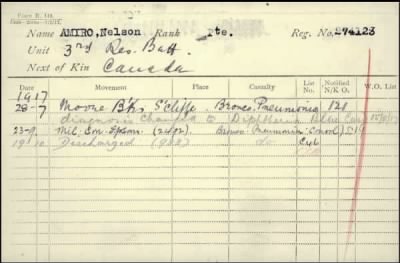 Form B. 14a.
Name AMIRO, Nelson Rank Pte. Reg. No. 274123
Unit 3rd Res. Batt.
Next of Kin Canada
Date Movement Place Casualty List No. Notified N/K O. W.O. List
1917
28-7 Moore Bks S'Cliffe. Bronco Pneumonia 121
diagnosis changed to Diphtheria
23-9 Mil. Con. Epsom (2402). Bronco-Pneumonia
19 10 Discharged (988) do C46